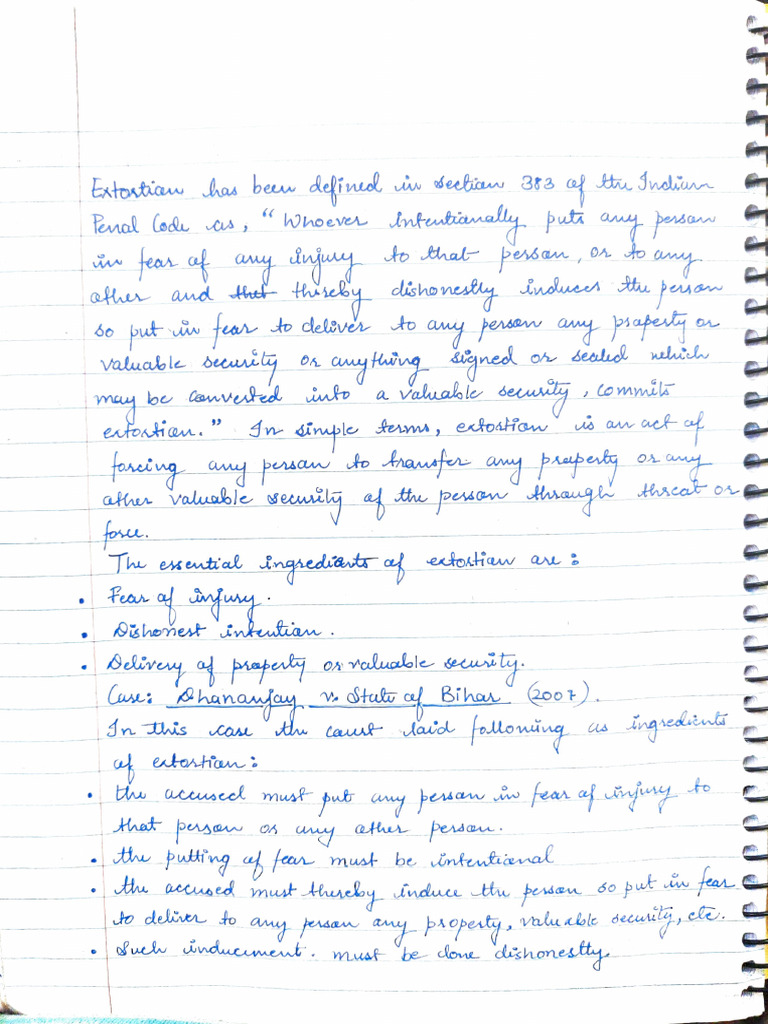 Extortion has been defined in section 383 of the Indian
Penal Code as, "Whoever intentionally puts any person
in fear of any injury to that person, or to any
other and that thereby dishonestly induces the person
so put in fear to deliver to any person any property or
valuable security or anything signed or sealed which
may be converted into a valuable security, commits
extortion." In simple terms, extortion is an act of
forcing any person to transfer any property or any
other valuable security of the person through threat or
force.
The essential ingredients of extortion are:
• Fear of injury.
• Dishonest intention.
• Delivery of property or valuable security.
Case: Dhananjay v. State of Bihar (2007).
In this case the court laid following as ingredients
of extortion:
• the accused must put any person in fear of injury to
that person or any other person.
• the putting of fear must be intentional
• the accused must thereby induce the person so put in fear
to deliver to any person any property, valuable security, etc.
• Such inducement. must be done dishonestly.